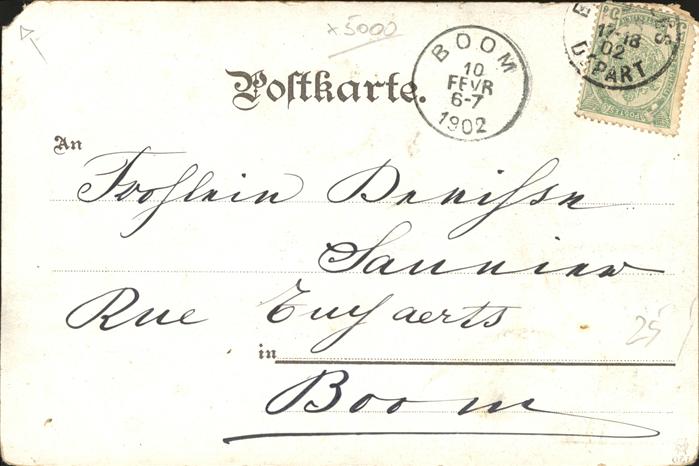 x 5000
BOOM
10
FEVR
6-7
1902
17-18
02
DEPART
Postkarte.
An
Frohlein Denisse
Saunier
Rue Tuyaerts
25
in
Boom